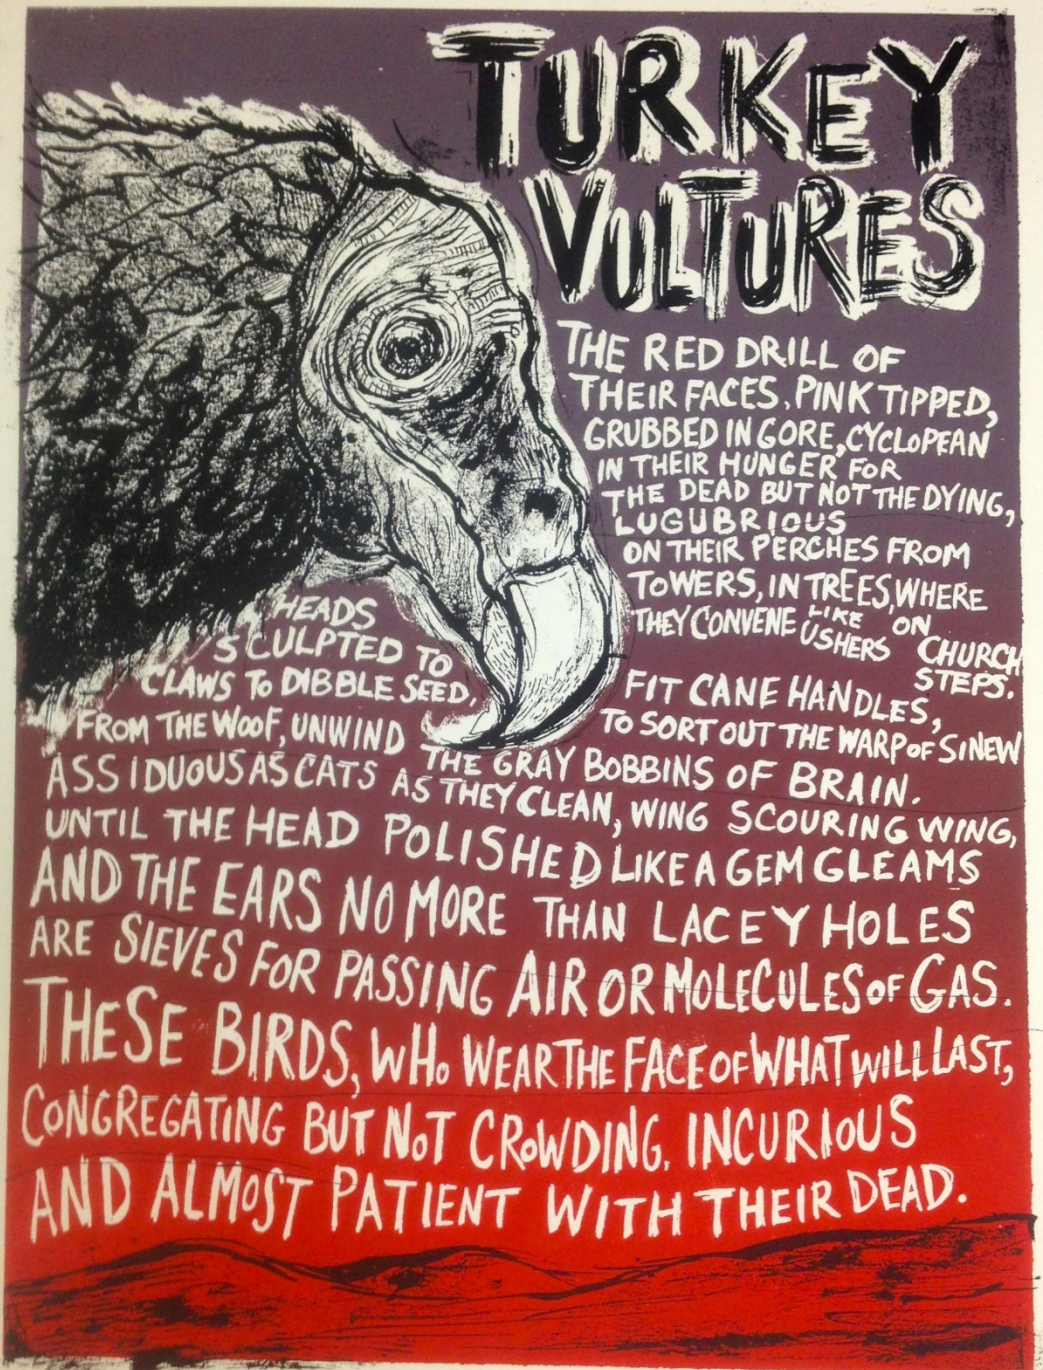 TURKEY
VULTURES
THE RED DRILL OF
THEIR FACES, PINK TIPPED,
GRUBBED IN GORE, CYCLOPEAN
IN THEIR HUNGER FOR
THE DEAD BUT NOT THE DYING,
LUGUBRIOUS
ON THEIR PERCHES FROM
TOWERS, IN TREES, WHERE
THEY CONVENE LIKE USHERS ON CHURCH STEPS.
HEADS
SCULPTED TO FIT CANE HANDLES,
CLAWS TO DIBBLE SEED, TO SORT OUT THE WARP OF SINEW
FROM THE WOOF, UNWIND THE GRAY BOBBINS OF BRAIN.
ASSIDUOUS AS CATS AS THEY CLEAN, WING SCOURING WING,
UNTIL THE HEAD POLISHED LIKE A GEM GLEAMS
AND THE EARS NO MORE THAN LACEY HOLES
ARE SIEVES FOR PASSING AIR OR MOLECULES OF GAS.
THESE BIRDS, WHO WEAR THE FACE OF WHAT WILL LAST,
CONGREGATING BUT NOT CROWDING, INCURIOUS
AND ALMOST PATIENT WITH THEIR DEAD.